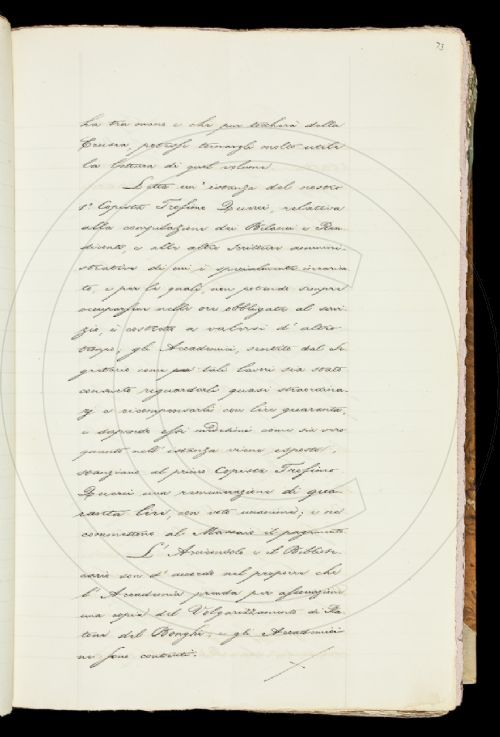 73
ha tra mano e che pur toccherà della
Crusca, potesse tornargli molto utile
la lettura di quel volume.
Letta un' istanza del nostro
1º Copista Trefimo Guarei, relativa
alla compilazione dei Bilanci e Ren-
diconti e alle altre scritture ammini-
strative di cui è specialmente incarica-
to, e per le quali, non potendo sempre
occuparsene nelle ore obbligate al servi-
zio, è costretto a valersi d' altro
tempo; gli Accademici, sentito dal Se
gretario come tali lavori sia stato
consueto riguardarli quasi straordina
rj e ricompensarli con lire quaranta,
e sapendo essi medesimi come sia vero
quanto nell' istanza viene esposto,
stanziano al primo Copista Trefimo
una remunerazione di qua-
ranta lire, con voto unanime; e ne
commettono al Massaio il pagamento.
L' Arciconsolo e il Bibliote-
cario son d' accordo nel proporre che
l' Accademia prenda per
una copia del Volgarizzamento di Pla-
tone del Bonghi; e gli Accademici
ne sono contenti.